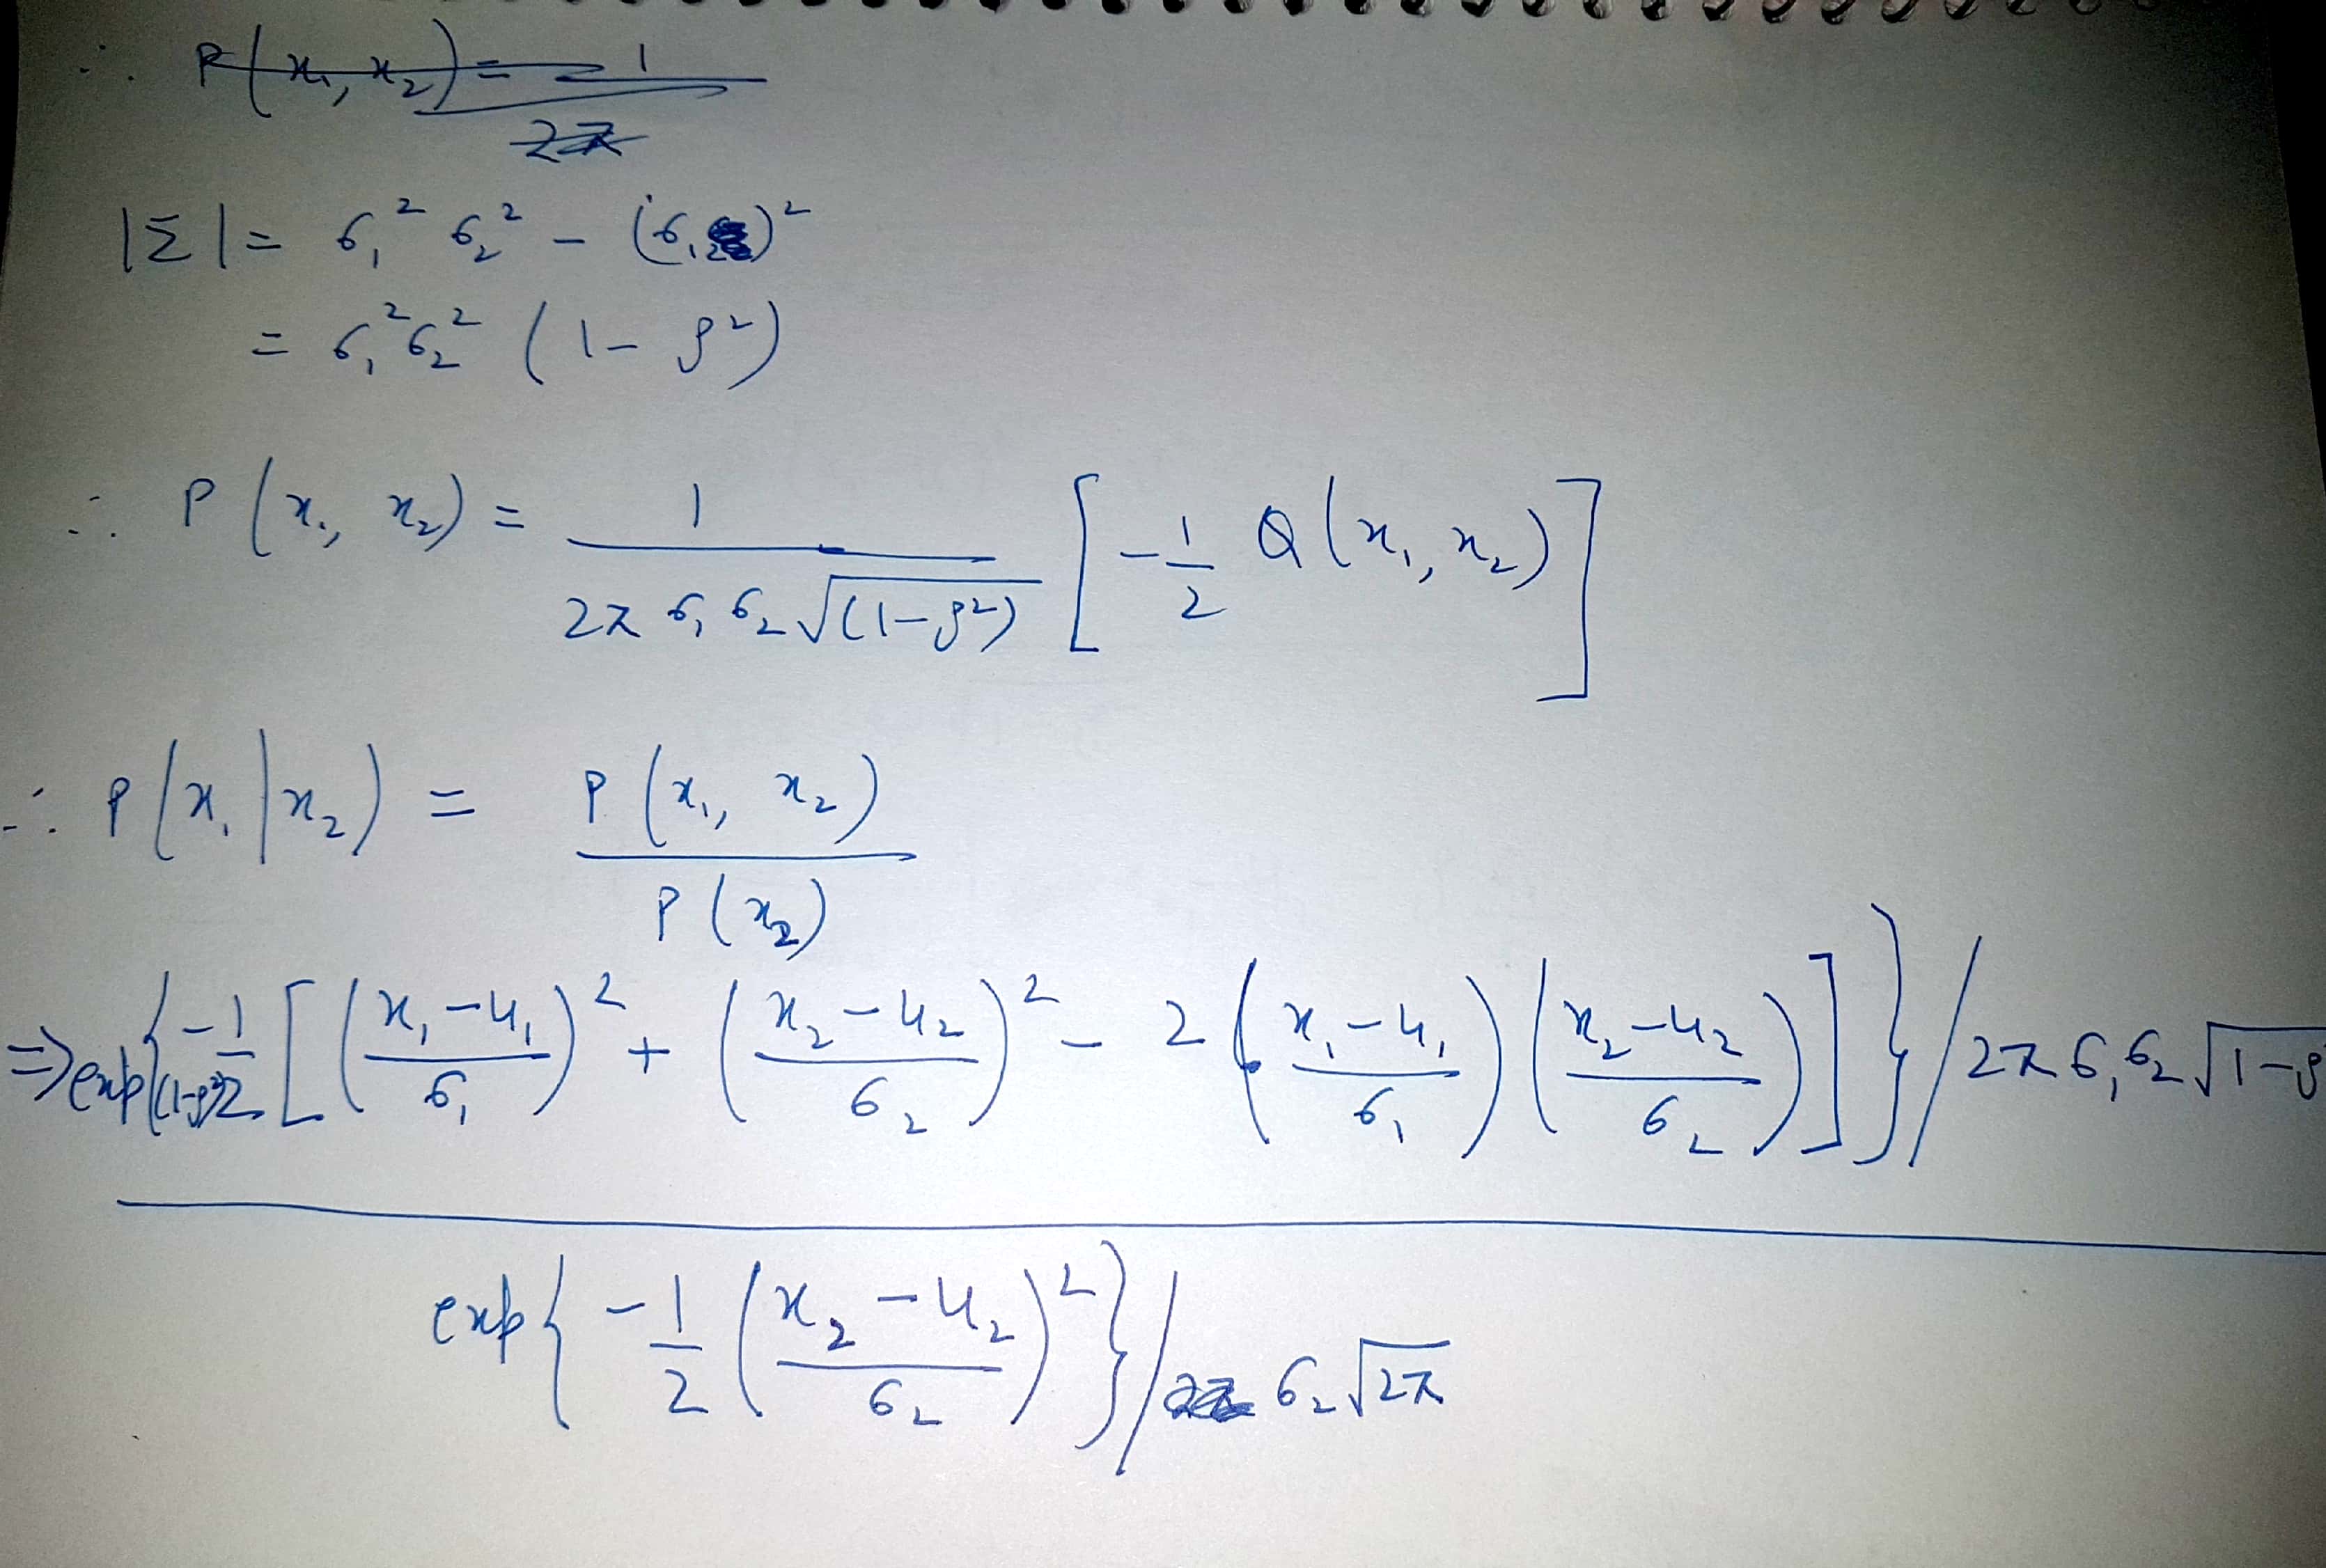 ∴ P(x₁, x₂) = 1 / 2π
|Σ| = σ₁² σ₂² − (σ₁₂)²
= σ₁² σ₂² (1 − ρ²)
∴ P(x₁, x₂) = 1 / 2π σ₁ σ₂ √(1−ρ²) [ −1/2 Q(x₁, x₂) ]
∴ P(x₁ | x₂) = P(x₁, x₂) / P(x₂)
⇒ exp{ −1/(1−ρ²)2 [ ((x₁−μ₁)/σ₁)² + ((x₂−μ₂)/σ₂)² − 2 ((x₁−μ₁)/σ₁) ((x₂−μ₂)/σ₂) ] } / 2π σ₁ σ₂ √1−ρ
exp{ −1/2 ((x₂−μ₂)/σ₂)² } / σ₂ √2π